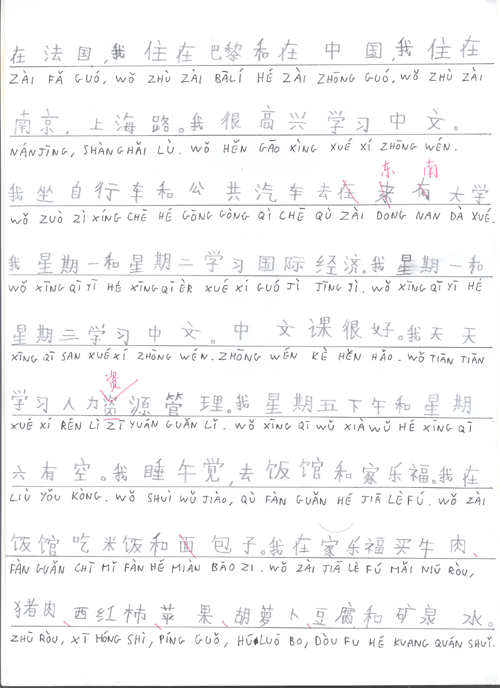 在法国,我住在巴黎和在中国,我住在
ZÀI FǍ GUÓ, WǑ ZHÙ ZÀI BĀLÍ HÉ ZÀI ZHŌNG GUÓ, WǑ ZHÙ ZÀI
南京,上海路。我很高兴学习中文。
NÁNJĪNG, SHÀNGHǍI LÙ. WǑ HĚN GĀO XÌNG XUÉ XÍ ZHŌNG WÉN.
东南
我坐自行车和公共汽车去在 大学
WǑ ZUÒ ZÌ XÍNG CHĒ HÉ GŌNG GÒNG QÌ CHĒ QÙ ZÀI DONG NAN DÀ XUÉ.
我星期一和星期二学习国际经济。我星期一和
WǑ XĪNG QĪ YĪ HÉ XĪNG QĪ ÈR XUÉ XÍ GUÓ JÌ JĪNG JÌ. WǑ XĪNG QĪ YĪ HÉ
星期三学习中文。中文课很好。我天天
XĪNG QĪ SAN XUÉ XÍ ZHŌNG WÉN. ZHŌNG WÉN KÈ HĚN HǍO. WǑ TIĀN TIĀN
资
学习人力资源管理。我星期五下午和星期
XUÉ XÍ RÉN LÌ ZĪ YUÁN GUǍN LǏ. WǑ XĪNG QĪ WǓ XIÀ WǓ HÉ XĪNG QĪ
六有空。我睡午觉,去饭馆和家乐福。我在
LIÙ YǑU KÒNG. WǑ SHUÌ WǓ JIÀO, QÙ FÀN GUǍN HÉ JIĀ LÈ FÚ. WǑ ZÀI
饭馆吃米饭和面包子。我在家乐福买牛肉、
FÀN GUǍN CHĪ MǏ FÀN HÉ MIÀN BĀO ZI. WǑ ZÀI JIĀ LÈ FÚ MǍI NIÚ RÒU,
猪肉、西红柿、苹果、胡萝卜、豆腐和矿泉水。
ZHŪ RÒU, XĪ HÓNG SHÌ, PÍNG GUǑ, HÚ LUÓ BO, DÒU FU HÉ KUANG QUÁN SHUǏ.